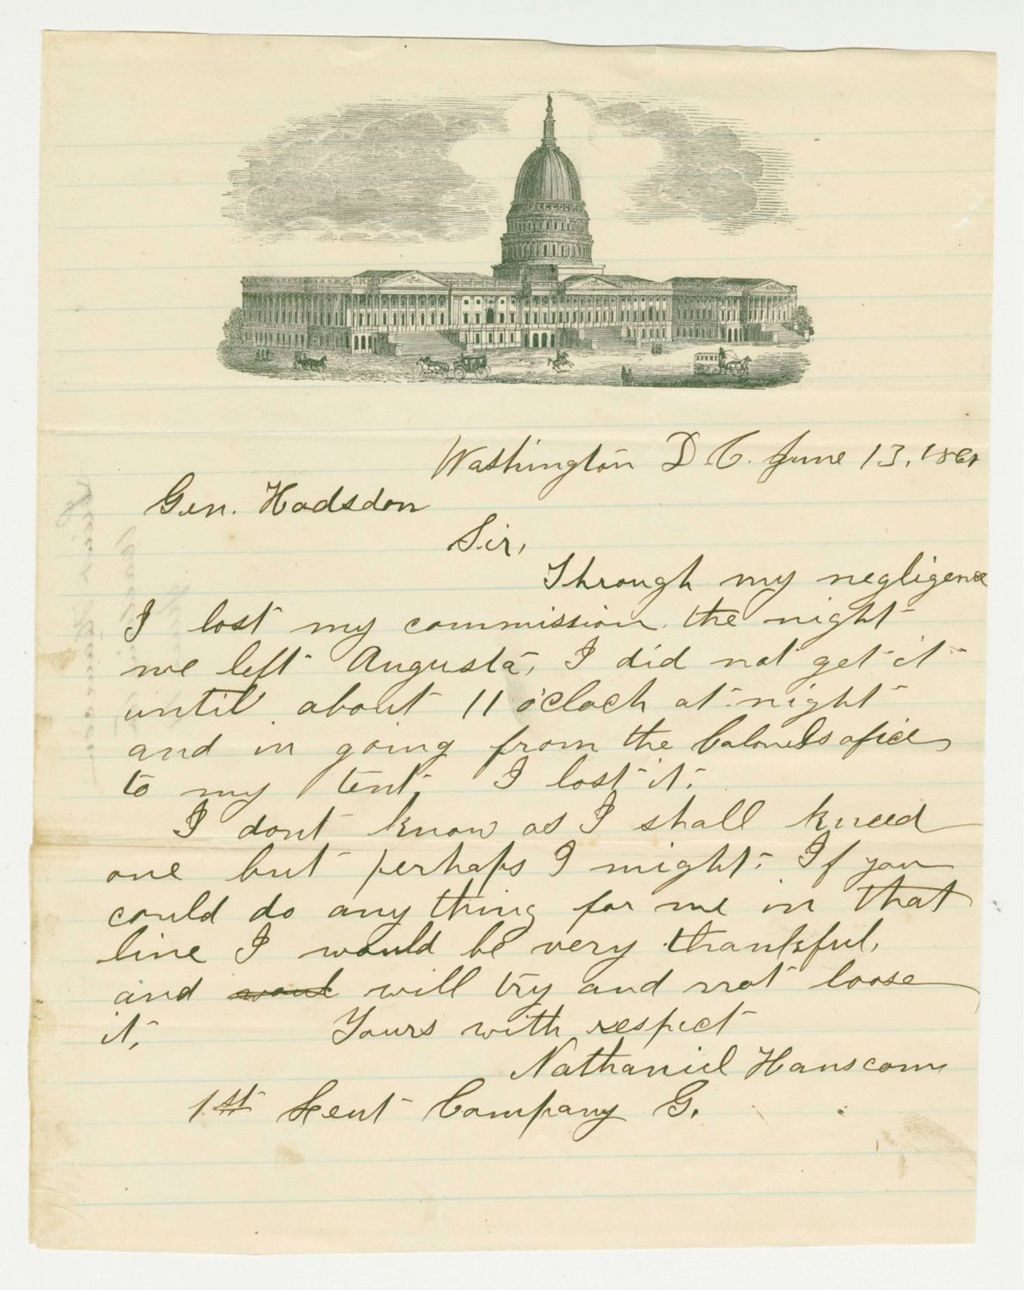 Washington D C. June 13, 1861
Gen. Hodsdon
Sir,
Through my negligence
I lost my commission. the night
we left Augusta, I did not get it
until about 11 o'clock at night
and in going from the Colonels ofice
to my tent, I lost it.
I dont know as I shall kneed
one but perhaps I might. If you
could do any thing for me in that
line I would be very thankful,
and will try and not loose
it, Yours with respect
Nathaniel Hanscom
1st Leut Company G.